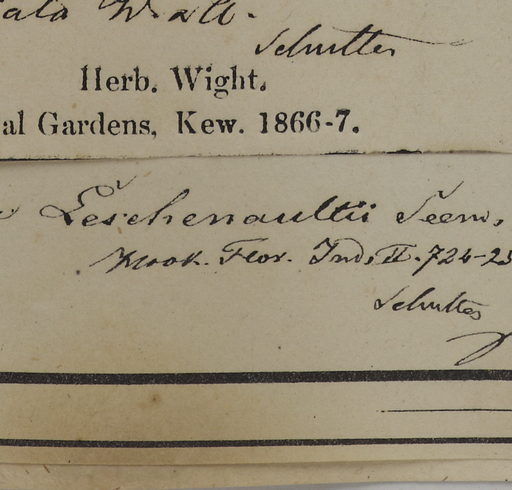 Wall.
Schuttes
Herb. Wight.
al Gardens, Kew. 1866-7.
Leschenaultii Seem.
Hook. Flor. Ind. II. 724-25
Schuttes